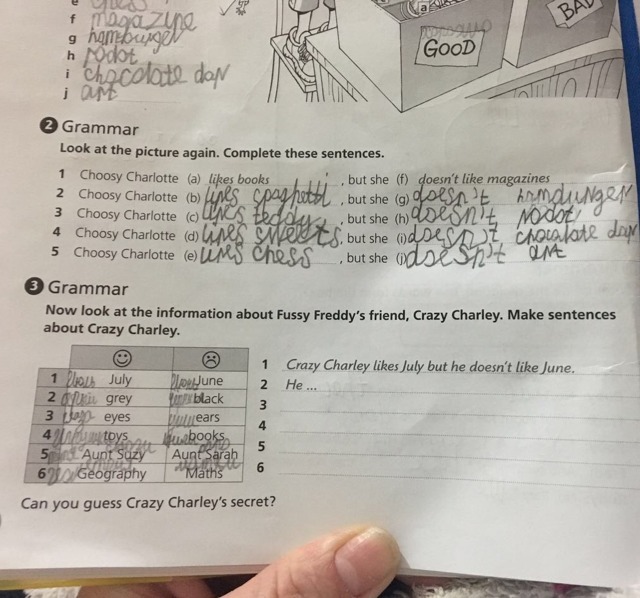 f magazine
g hamburger
h rodot
i chocolate dar
j art
GOOD
BAD
a
2 Grammar
Look at the picture again. Complete these sentences.
1 Choosy Charlotte (a) likes books , but she (f) doesn't like magazines
2 Choosy Charlotte (b) likes spaghettl , but she (g) doesn't hamdunger
3 Choosy Charlotte (c) likes teddy , but she (h) doesn't rodot
4 Choosy Charlotte (d) likes sweets, but she (i) doesn't chocalate dar
5 Choosy Charlotte (e) likes chess , but she (j) doesn't art
3 Grammar
Now look at the information about Fussy Freddy's friend, Crazy Charley. Make sentences
about Crazy Charley.
1 July June
2 grey black
3 eyes ears
4 toys books
5 Aunt Suzy Aunt Sarah
6 Geography Maths
1 Crazy Charley likes July but he doesn't like June.
2 He ...
3
4
5
6
Can you guess Crazy Charley's secret?